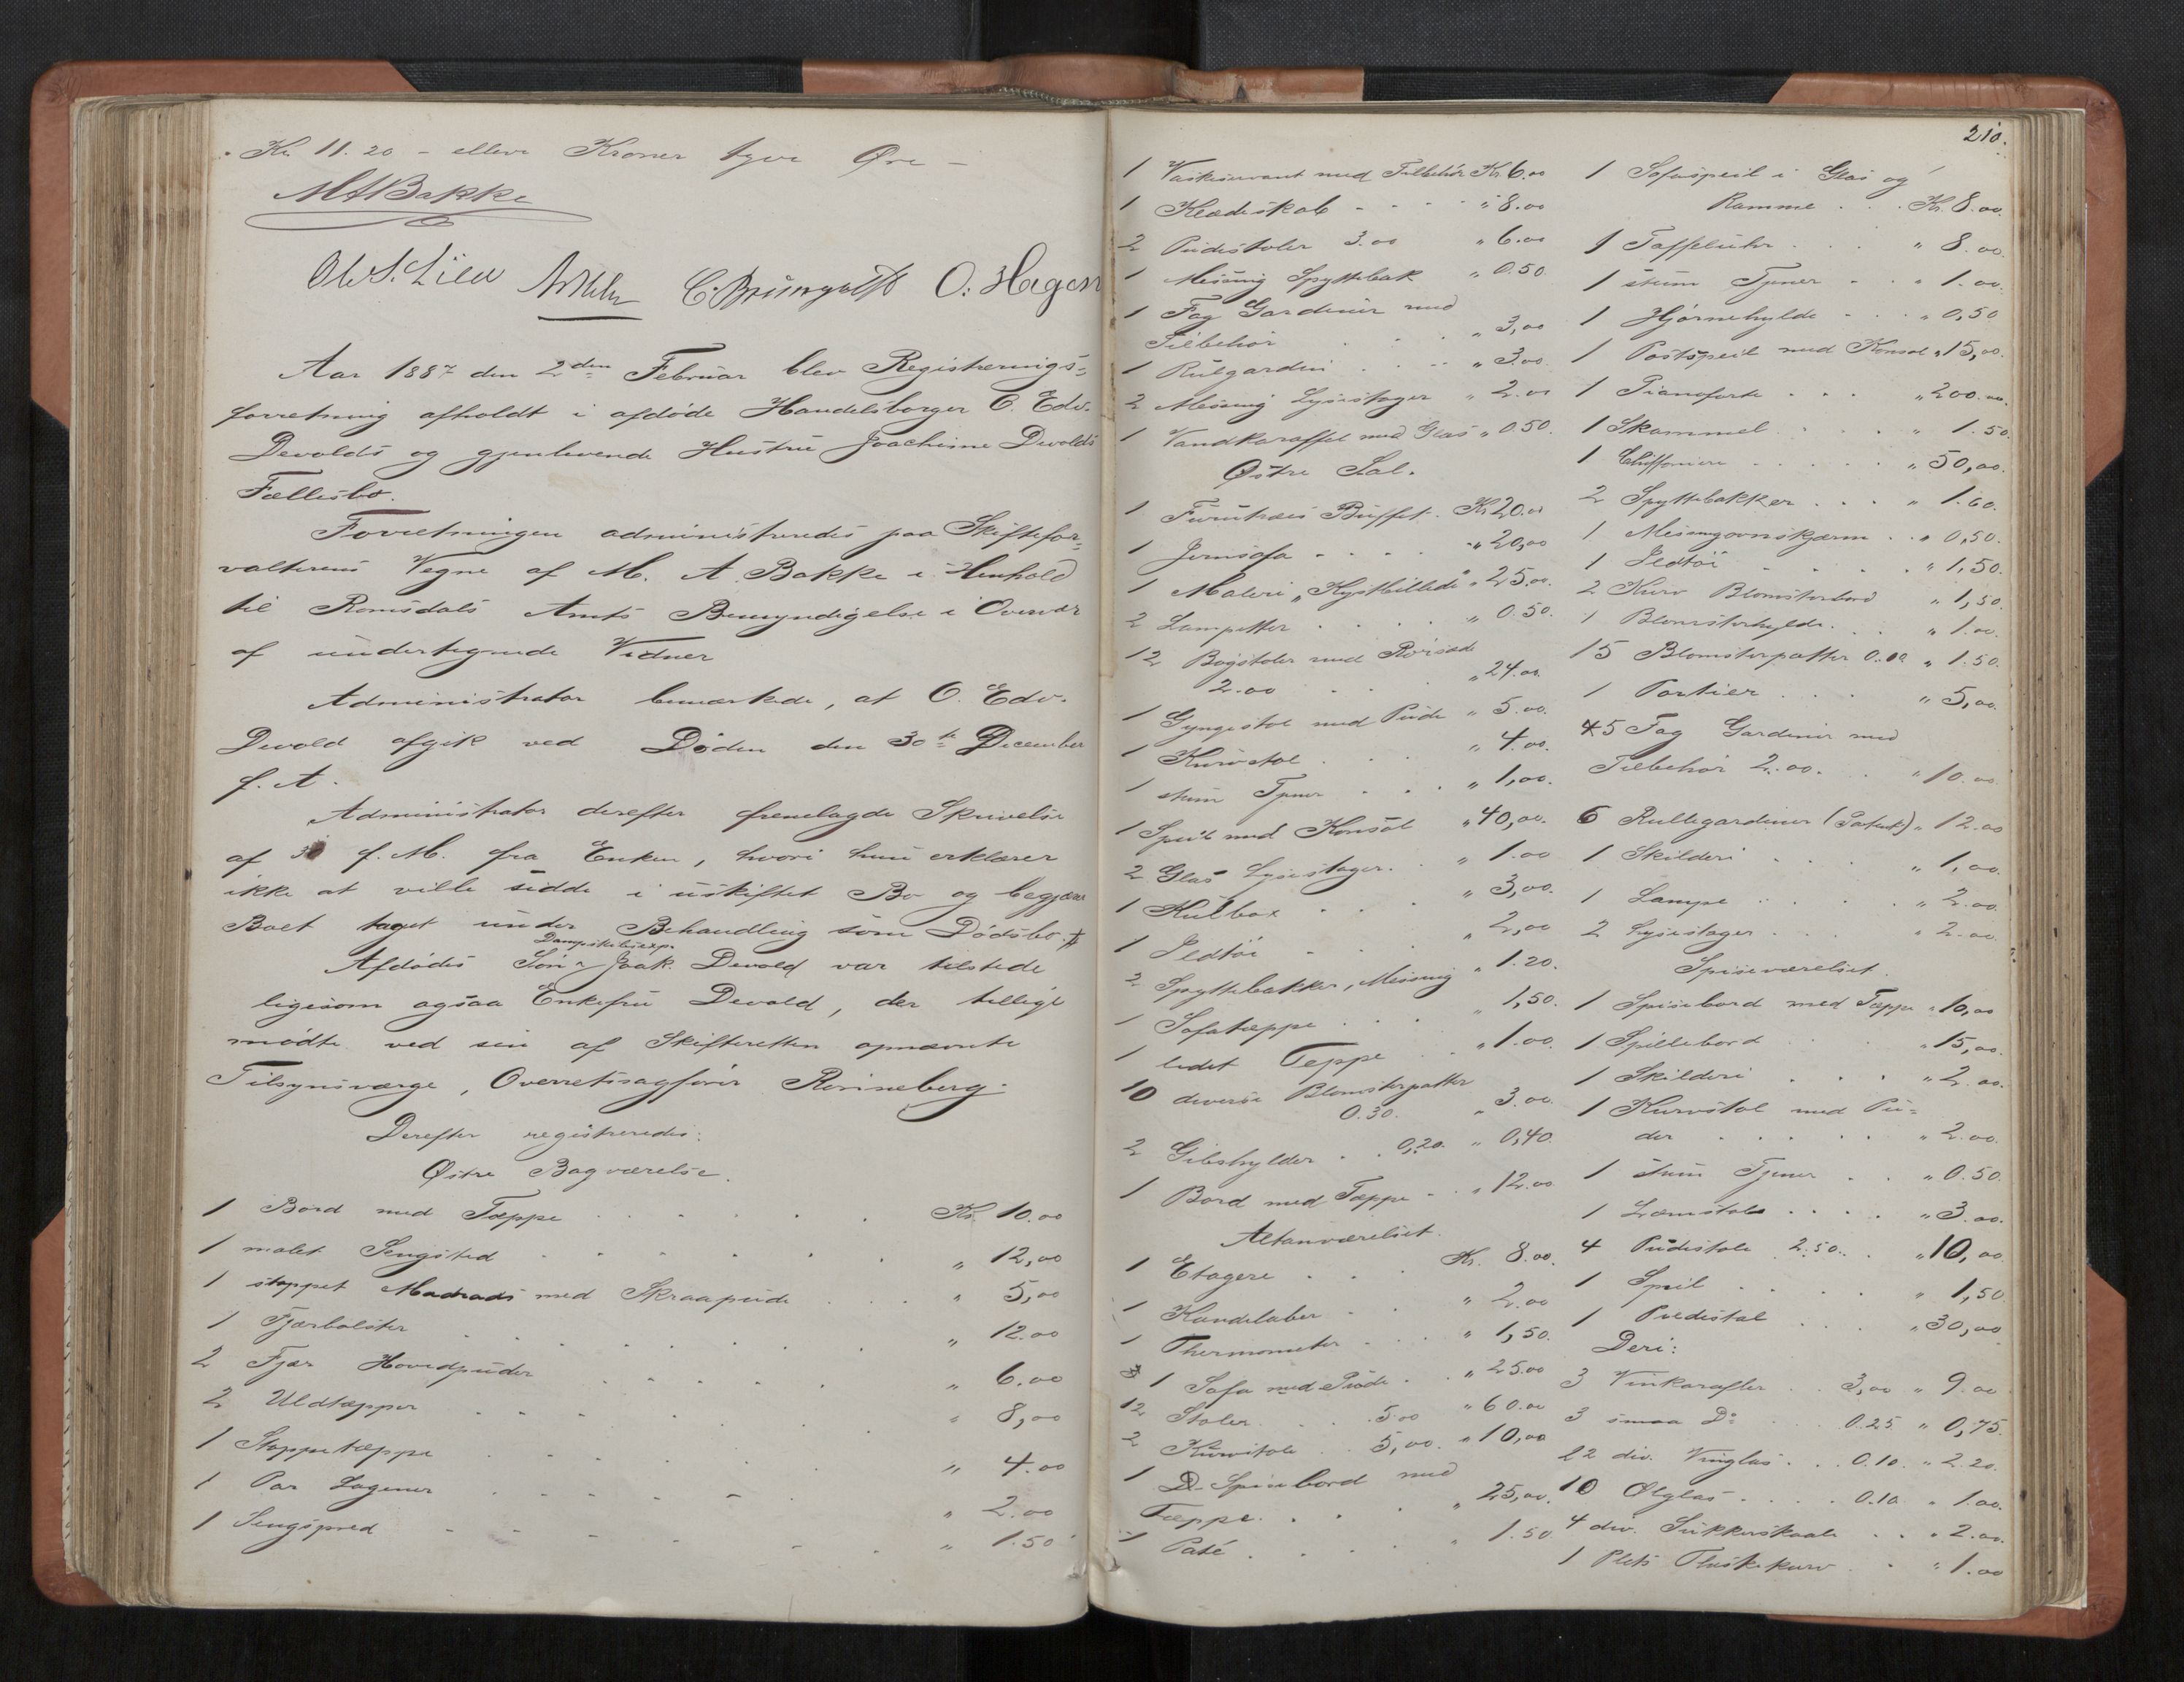 Kr. 11.20 - elleve Kroner tyve Øre -
M A Bakke
Ole S. Lien C. Brüngodt O. Hagen
Aar 1887 den 2den Februar blev Registrerings=
forretning afholdt i afdøde Handelsborger O. Edv.
Devolds og gjenlevende Hustru Joachime Devolds
Fællesbo.
Forretningen administreredes paa Skiftefor=
valterens Vegne af M. A. Bakke i Henhold
til Romsdals Amts Bemyndigelse i Overvær
af undertegnede Vidner
Administrator bemærkede, at O. Edv.
Devold afgik ved Døden den 30te December
f. A.
Administrator derefter fremlagde Skrivelse
af f. M. fra Enken, hvori hun erklærer
ikke at ville sidde i uskiftet Bo og begjærer
Boet taget under Behandling som Dødsbo.
Dampskibsexp.
Afdødes Søn Joak. Devold var tilstede
ligesom ogsaa Enkefru Devold, der tillige
mødte ved sin af Skifteretten opnævnte
Tilsynsværge, Overretssagfører Rønneberg.
Derefter registreredes:
Østre Bagværelse.
1 Bord med Tæppe . . . . . Kr. 10.00
1 malet Sengsted . . . . . " 12,00
1 stoppet Madrads med Skraapude . . . " 5,00
1 Fjærbolster . . . . . . " 12.00
2 Fjær Hovedpuder . . . . . " 6.00
2 Uldtæpper . . . . . . " 8,00
1 Stoppetæppe . . . . . . " 4.00
1 Par Lagener . . . . . . " 2.00
1 Sengspred . . . . . . " 1.50
210.
1 Vaskeservant med Tilbehør Kr. 6.00
1 Klædeskab - - - - " 8.00
2 Pudestoler 3.00 " 6.00
1 Messing Spyttebak " 0.50.
1 Fag Gardiner med
Tilbehør . . . " 3,00
1 Rulgardin . . . . " 3.00.
2 Messing Lysestager " 2.00
1 Vandkaraffel med Glas " 0.50.
Østre Sal.
1 Furutræes Buffet. Kr. 20.00
1 Jernsofa - - - - " 20,00
1 Maleri "Kystbillede" " 25.00.
2 Lampetter . . . . " 0.50.
12 Bogstoler med Rørsæde
2.00 . . " 24.00.
1 Gyngestol med Pude " 5.00.
1 Kurvstol . . . " 4.00.
1 stum Tjener . . . " 1,00.
1 Speil med Konsol " 40,00.
2 Glas Lysestager. . " 1.00
1 Kulbox . . . " 3,00.
1 Ildtøi - . . " 2,00
2 Spyttebakker, Messing " 1.20.
1 Sofatæppe . . . " 1,50.
1 lidet Teppe . . " 1.00.
10 diverse Blomsterpotter
0.30. " 3.00.
2 Gibshylder . . 0,20. " 0,40.
1 Bord med Tæppe - . " 12.00
Altanværelset.
1 Etagere . . . Kr. 8.00.
1 Kandelaber . . " 2.00
1 Thermometer . . . " 1,50.
1 Sofa med Pude . . " 25.00
12 Stoler. . . . 5.00 " 60.00
2 Kurvstole . . 5,00. " 10,00
1 Spisebord med
Tæppe. . . . " 25,00.
1 Paté . . . . " 1.50
1 Sofaspeil i Glas og
Ramme . . . Kr. 8.00.
1 Taffeluhr . . . " 8.00.
1 stum Tjener - . . " 1.00.
1 Hjørnehylde - . . " 0,50
1 Postspeil med Konsol " 15,00.
1 Pianoforte . . . " 200.00.
1 Skammel . . . . " 1.50.
1 Chiffoniere . . . . . " 50,00.
2 Spyttebakker . . . " 1.60.
1 Messingovnskjærm . . " 0,50.
1 Ildtøi . . . . . " 1,50.
2 Kurv Blomsterbord " 1,50.
1 Blomsterhylde. . . " 1.00.
15 Blomsterpotter 0.10 " 1.50.
1 Portier . . . " 5,00.
5 Fag Gardiner med
Tilbehør 2.00. . . " 10.00
6 Rullegardiner (Patent) " 12.00
1 Skilderi . . . . " 1,00.
1 Lampe . . . . . " 2.00.
2 Lysestager . . . " 2.00.
Spiseværelset.
1 Spisebord med Tæppe " 10,00
1 Spillebord . . . " 15,00.
1 Skilderi . . . . " 2.00.
1 Kurvstol med Pu=
der . . . . . " 2.00.
1 stum Tjener . . " 0.50.
1 Lænstol . . . . " 3.00.
4 Pudestole 2.50. . " 10,00
1 Speil . . . . . " 1,50
1 Pidestal . . . " 30,00
Deri:
3 Vinkarafler . . 3,00 " 9.00
3 smaa Do . . . 0.25 " 0,75.
22 div. Vinglas . . . 0.10. " 2.20.
10 Ølglas . . . . 0.10 " 1.00.
4 div. Sukkerskaale . . " 2.00.
1 Plets Fluskekurv . . " 1.00